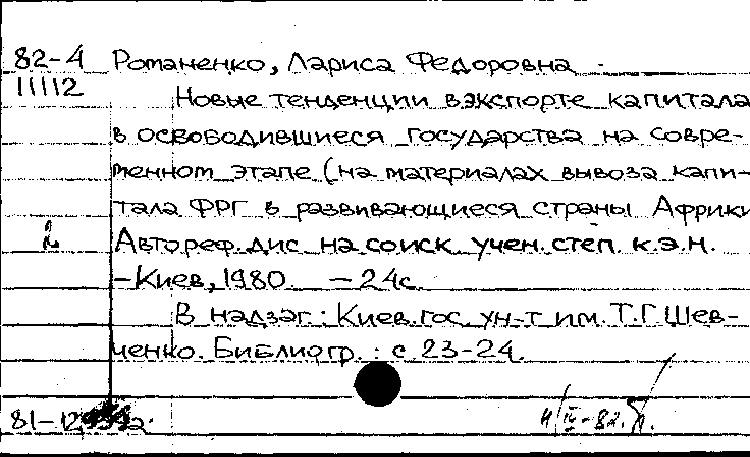 82-4 Романенко, Лариса Федоровна
11112 Новые тенденции в экспорте капитала
в освободившиеся государства на совре-
менном этапе (на материалах вывоза капи-
тала ФРГ в развивающиеся страны Африки
2 Автореф. дис на соиск учен. степ. к.э.н.
-Киев, 1980. - 24с.
В надзаг: Киев. гос. ун-т им. Т.Г. Шев-
ченко. Библиогр.: с. 23-24.
IV-82.